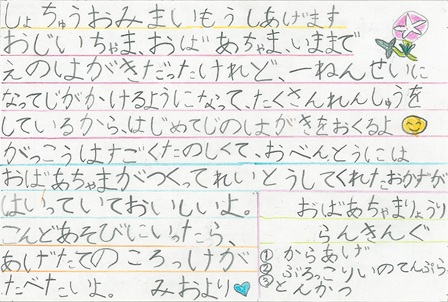 しょちゅうおみまいもうしあげます
おじいちゃま、おばあちゃま、いままで
えのはがきだったけれど、一ねんせいに
なってじがかけるようになって、たくさんれんしゅうを
しているから、はじめてじのはがきをおくるよ
がっこうはすごくたのしくて、おべんとうには
おばあちゃまがつくってれいとうしてくれたおかずが
はいっていておいしいよ。
こんどあそびにいったら、
あげたてのころっけが
たべたいよ。 みおより
おばあちゃまりょうり
らんきんぐ
①からあげ
②ぶろっこりいのてんぷら
③とんかつ